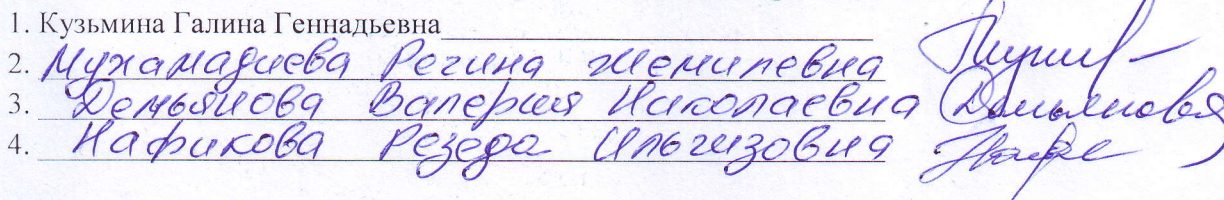 1. Кузьмина Галина Геннадьевна
2. Мухамадиева Регина Жемилевна
3. Демьянова Валерия Николаевна Демьянова
4. Нафикова Резеда Ильгизовна